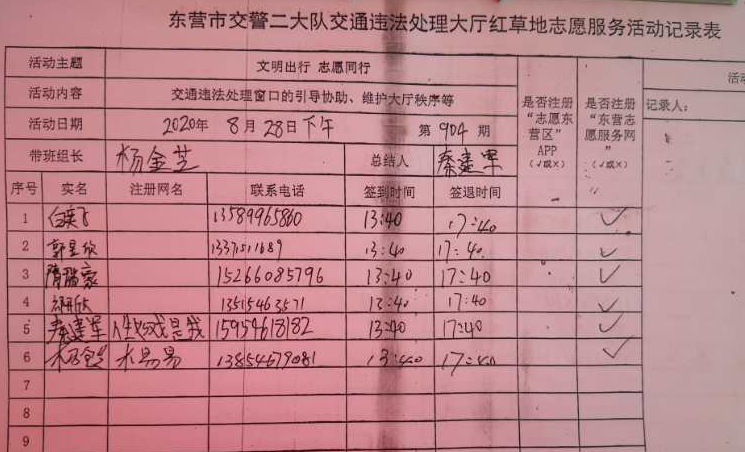 东营市交警二大队交通违法处理大厅红草地志愿服务活动记录表
活动主题 文明出行 志愿同行
活动内容 交通违法处理窗口的引导协助、维护大厅秩序等
活动日期 2020年 8月28日下午 第904期
是否注册“志愿东营区”APP（√或×）
是否注册“东营志愿服务网”（√或×）
活动
记录人：
带班组长 杨金芝 总结人 秦建军
序号 实名 注册网名 联系电话 签到时间 签退时间
1 白奕飞 13589965860 13:40 17:40 ✓
2 郭昱欣 13:40 17:40 ✓
3 隋瑞豪 15266085796 13:40 17:40 ✓
4 13515463571 13:40 17:40 ✓
5 秦建军 15954618182 13:40 17:40 ✓
6 杨金芝 水易易 13854679081 13:40 17:40 ✓
7
8
9